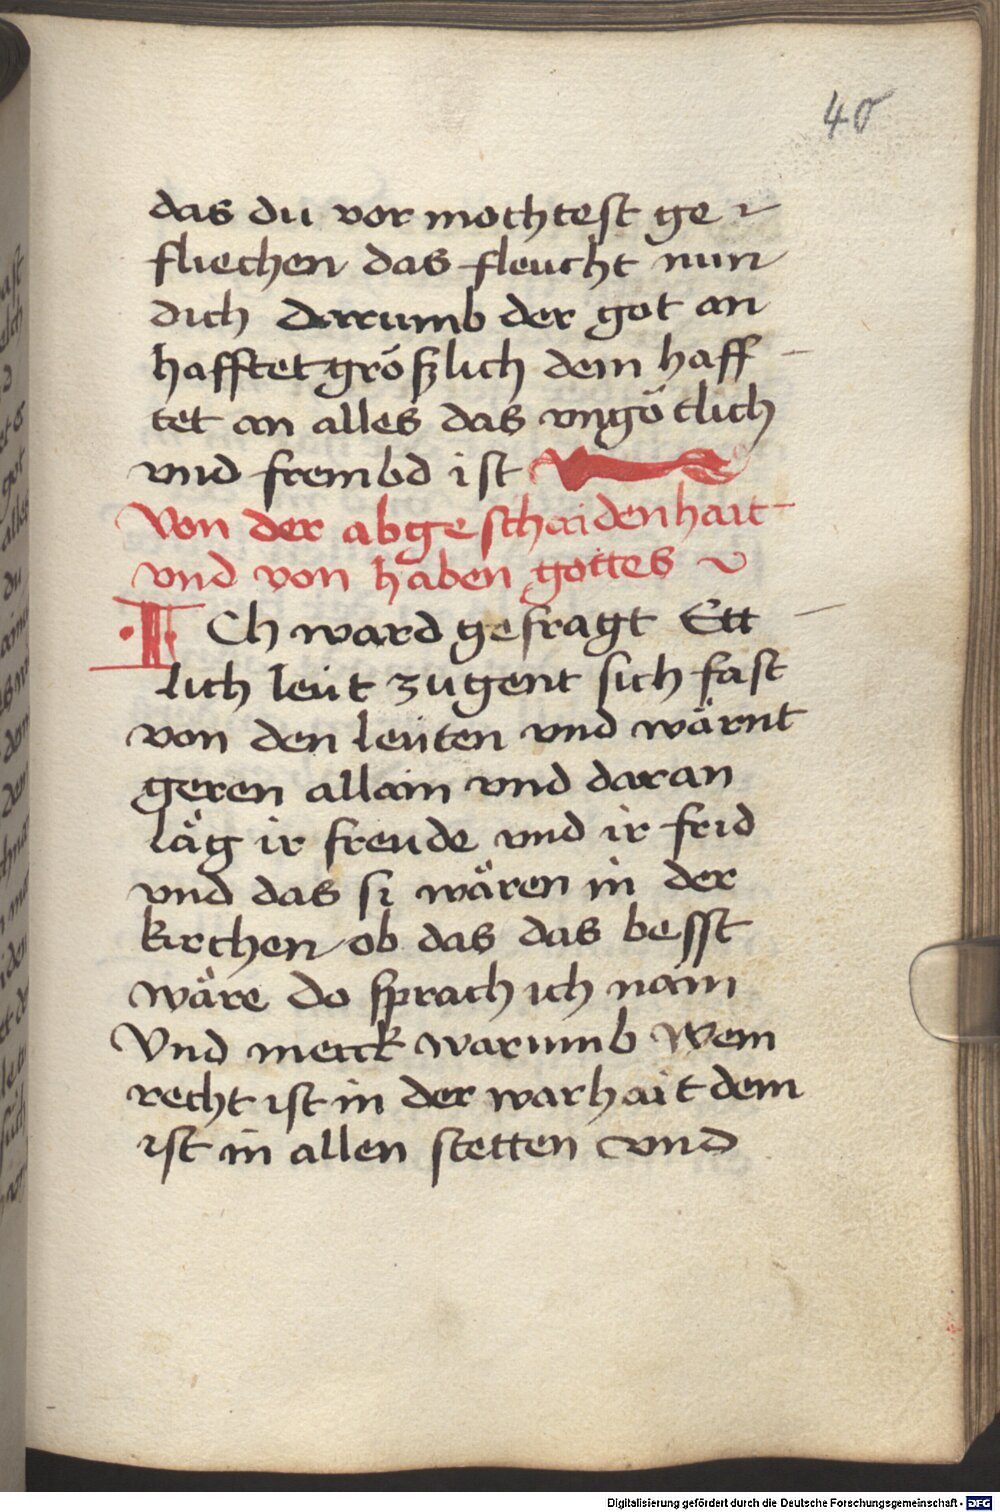 40
das du vor mochtest ge
fliechen das fleucht nun
dich Darumb der got an
hafftet größlich dem haff
tet an alles das vngötlich
vnd frembd ist
Von der abgeschaidenhait
vnd von haben gottes
ICh ward gefragt Ett
lich leüt zugent sich fast
von den leüten vnd wärnt
geren allain vnd daran
läg ir freude vnd ir frid
vnd das si wären in der
kirchen ob das das besst
wäre Do sprach ich nain
Vnd merck warumb Wem
recht ist in der warhait dem
ist in allen stetten vnd
Digitalisierung gefördert durch die Deutsche Forschungsgemeinschaft - DFG